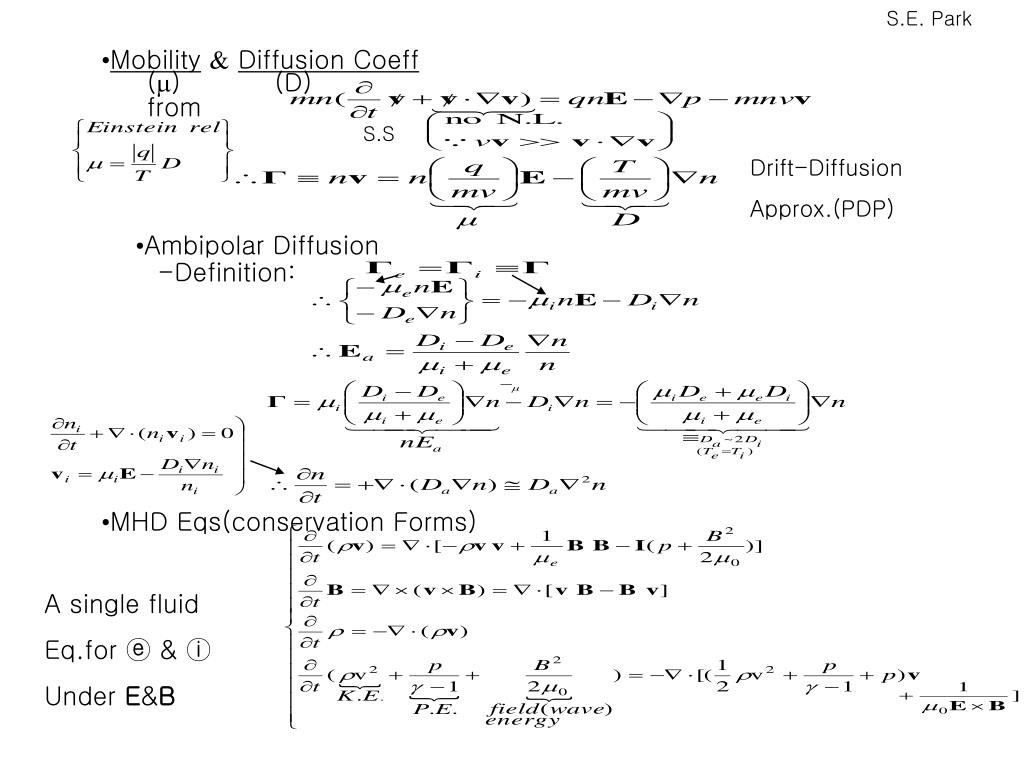 S.E. Park
•Mobility & Diffusion Coeff
(μ) (D)
from
mn(∂/∂t v + v · ∇v) = qnE − ∇p − mnνv
S.S
(no N.L. ∵ νv >> v · ∇v)
{Einstein rel μ = |q|/T D}
∴ Γ ≡ nv = n(q/mν)E − (T/mν)∇n
μ D
Drift-Diffusion
Approx.(PDP)
•Ambipolar Diffusion
-Definition:
Γe = Γi ≡ Γ
∴ {− μe nE − De∇n} = −μi nE − Di∇n
∴ Ea = (Di − De)/(μi + μe) ∇n/n
Γ = μi((Di − De)/(μi + μe))∇n − Di∇n = −((μiDe + μeDi)/(μi + μe))∇n
−μ
nEa
≡Da ~2Di
(Te=Ti)
∂ni/∂t + ∇ · (ni vi) = 0
vi = μiE − Di∇ni/ni
∴ ∂n/∂t = +∇ · (Da∇n) ≅ Da∇²n
•MHD Eqs(conservation Forms)
∂/∂t (ρv) = ∇ · [−ρv v + 1/μe B B − I(p + B²/2μ0)]
∂/∂t B = ∇ × (v × B) = ∇ · [v B − B v]
∂/∂t ρ = −∇ · (ρv)
∂/∂t (ρv² + p/(γ − 1) + B²/2μ0) = −∇ · [(1/2 ρv² + p/(γ − 1) + p)v + 1/(μ0E × B)]
K.E. P.E. field(wave) energy
A single fluid
Eq.for ⓔ & ⓘ
Under E&B